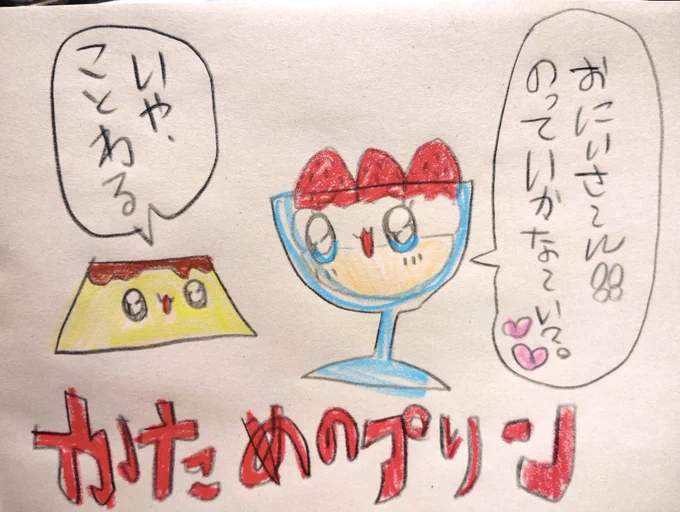 おにいさ〜ん
のっていかな〜い?。
いや、
ことわる
かためのプリン